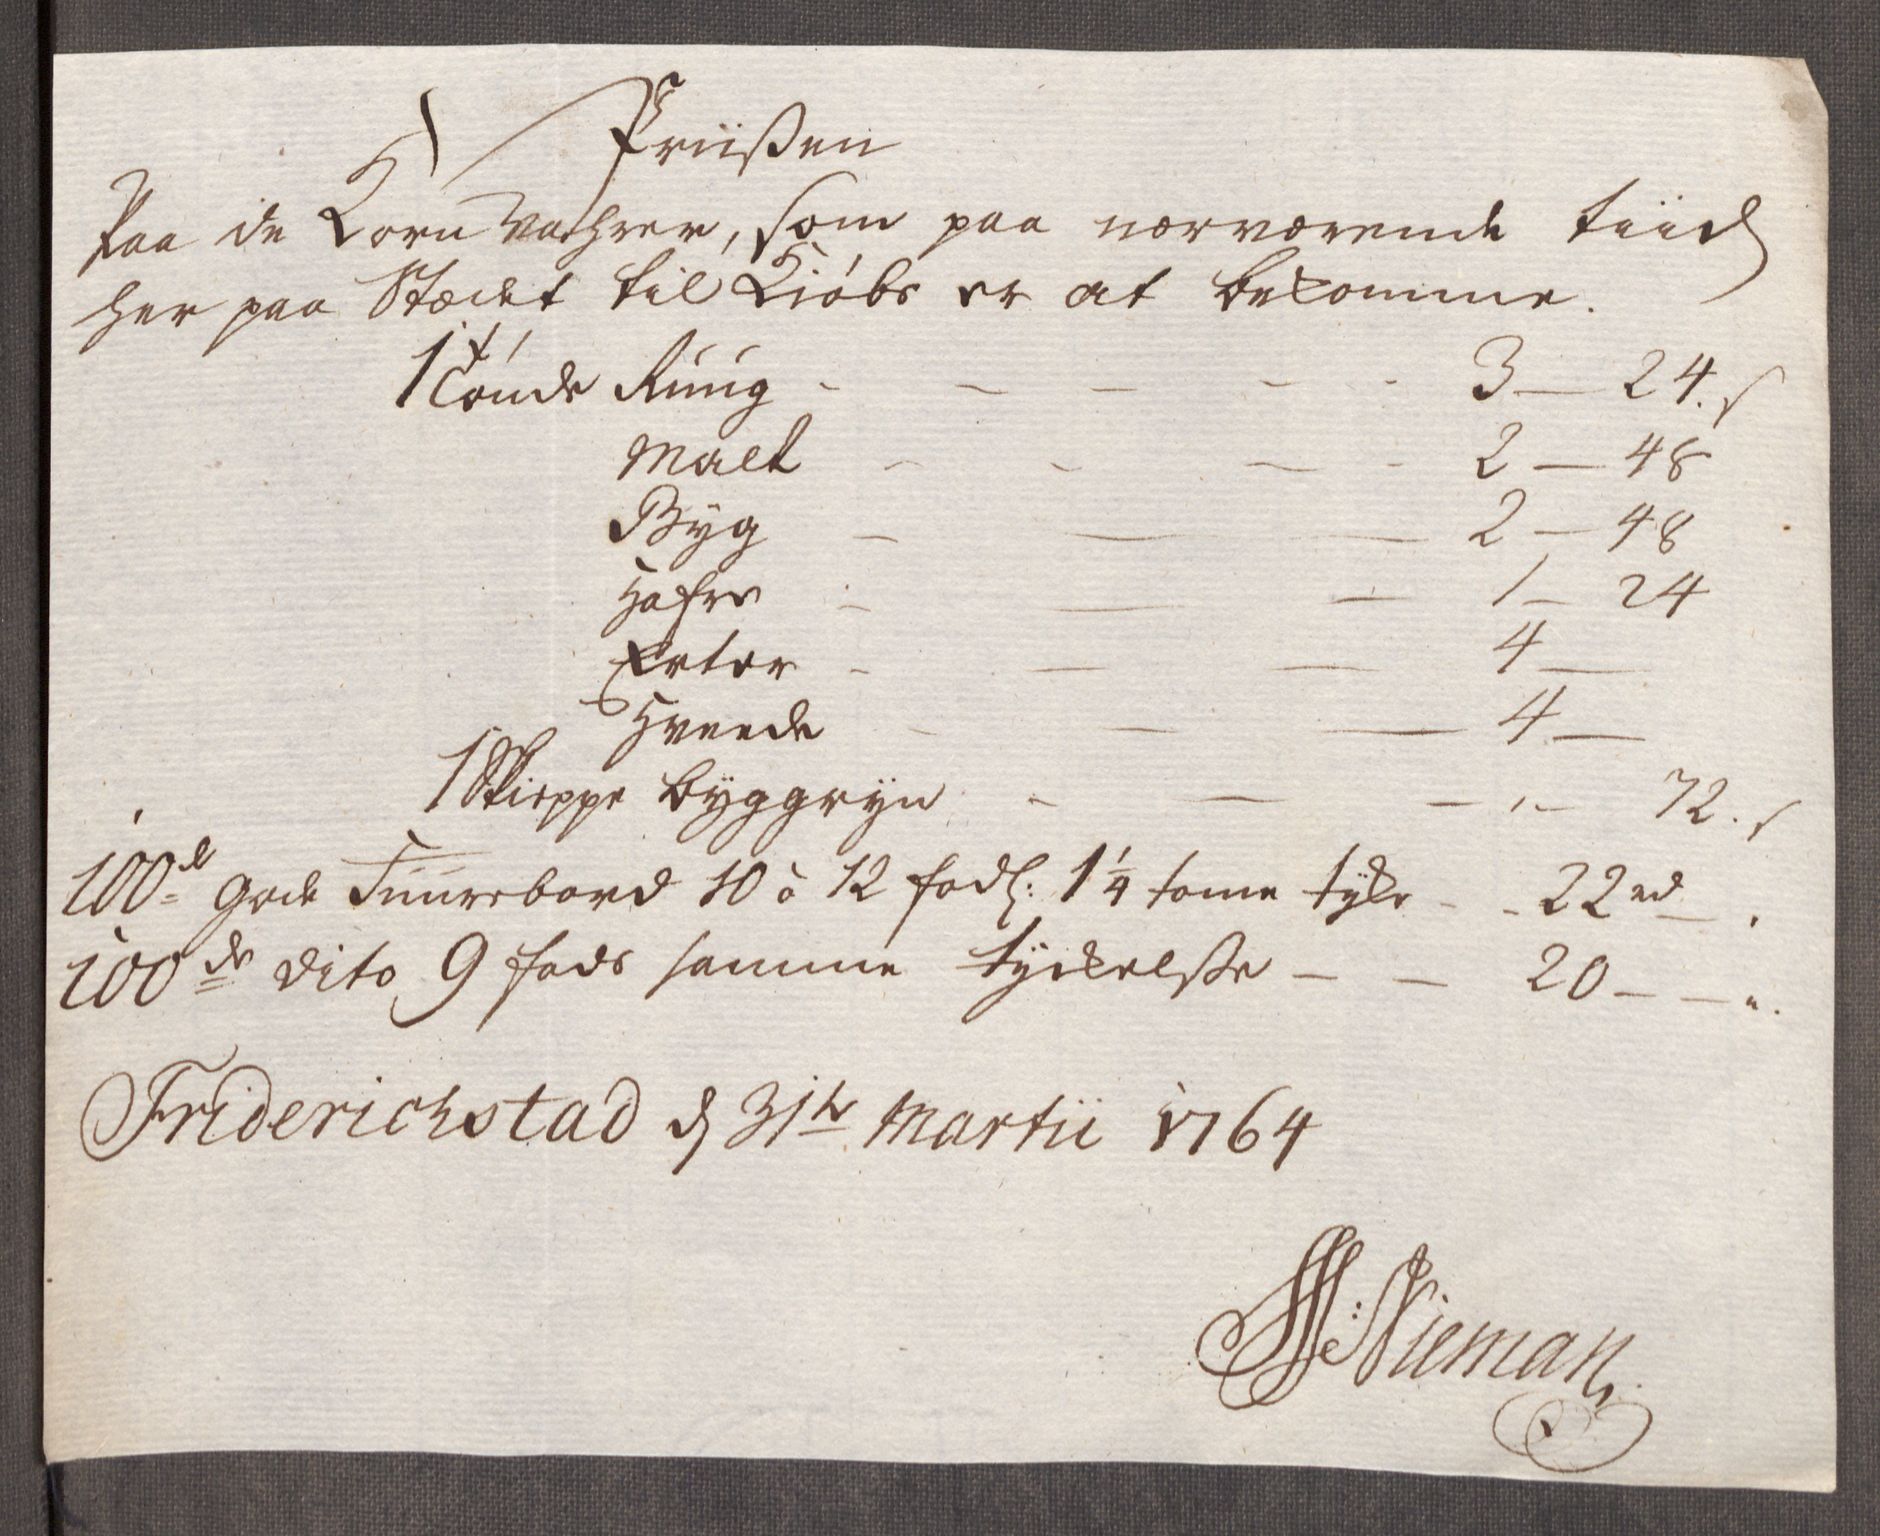 Priißen
Paa de Korn Vahrer, som paa nærværende tiid
her paa Stædet til Kiøbs er at bekomme.
1 Tønde Ruug - - - - - 3 — 24. s
Malt - - - - 2 — 48
Byg - - - 2 — 48
Hafre - - - 1 — 24
Erter - - - 4 —
Hveede - - - 4 —
1 Skieppe byggryn - - - " — 72. s
100de gode Fuurebord 10 à 12 fods: 1 1/4 tome tyke - - 22 rd — .
100de dito 9 fods samme tyckelße — — 20 — — ".
Friderichstad d 31te Martii 1764
Nieman